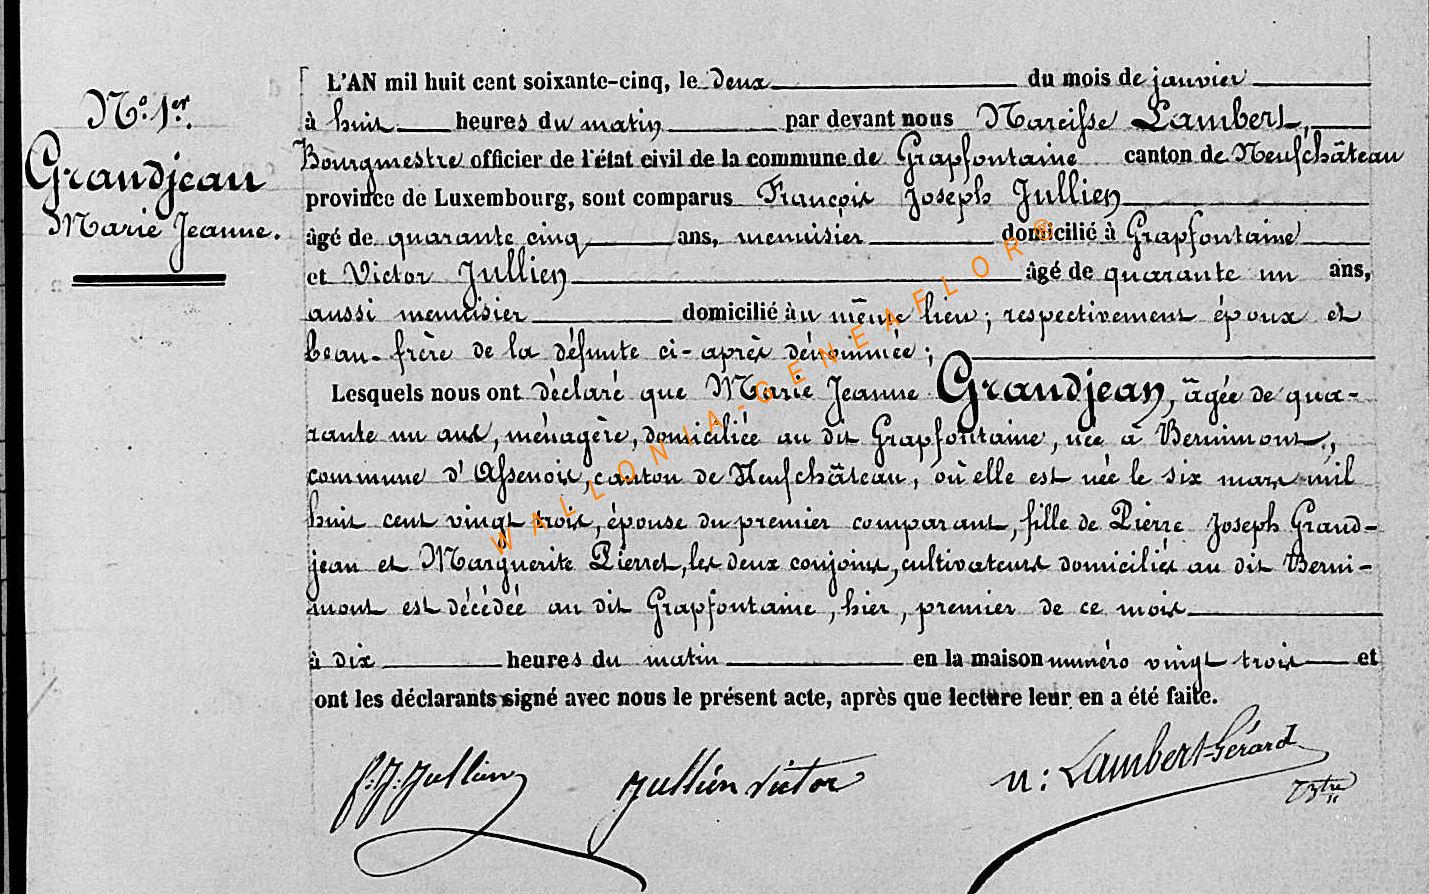 N.° 1er.
Grandjean
Marie Jeanne.
L'AN mil huit cent soixante-cinq, le deux du mois de janvier
à huit heures du matin par devant nous Narcisse Lambert,
Bourgmestre officier de l'état civil de la commune de Grapfontaine canton de Neufchâteau
province de Luxembourg, sont comparus François Joseph Jullien
âgé de quarante cinq ans, menuisier domicilié à Grapfontaine
et Victor Jullien âgé de quarante un ans,
aussi menuisier domicilié au même lieu ; respectivement époux et
beau-frère de la défunte ci-après dénommée ;
Lesquels nous ont déclaré que Marie Jeanne Grandjean, âgée de qua-
rante un ans, ménagère, domiciliée au dit Grapfontaine, née à Bernimont,
commune d'Assenois, canton de Neufchâteau, où elle est née le six mars mil
huit cent vingt trois, épouse du premier comparant, fille de Pierre Joseph Grand-
jean et Marguerite Pierret, les deux conjoins, cultivateurs domiciliés au dit Berni-
mont est décédée au dit Grapfontaine, hier, premier de ce mois
à dix heures du matin en la maison numéro vingt trois et
ont les déclarants signé avec nous le présent acte, après que lecture leur en a été faite.
f. J. Jullien Jullien Victor N: Lambert-Gérard
WALLONIA-GENEAFLOR®